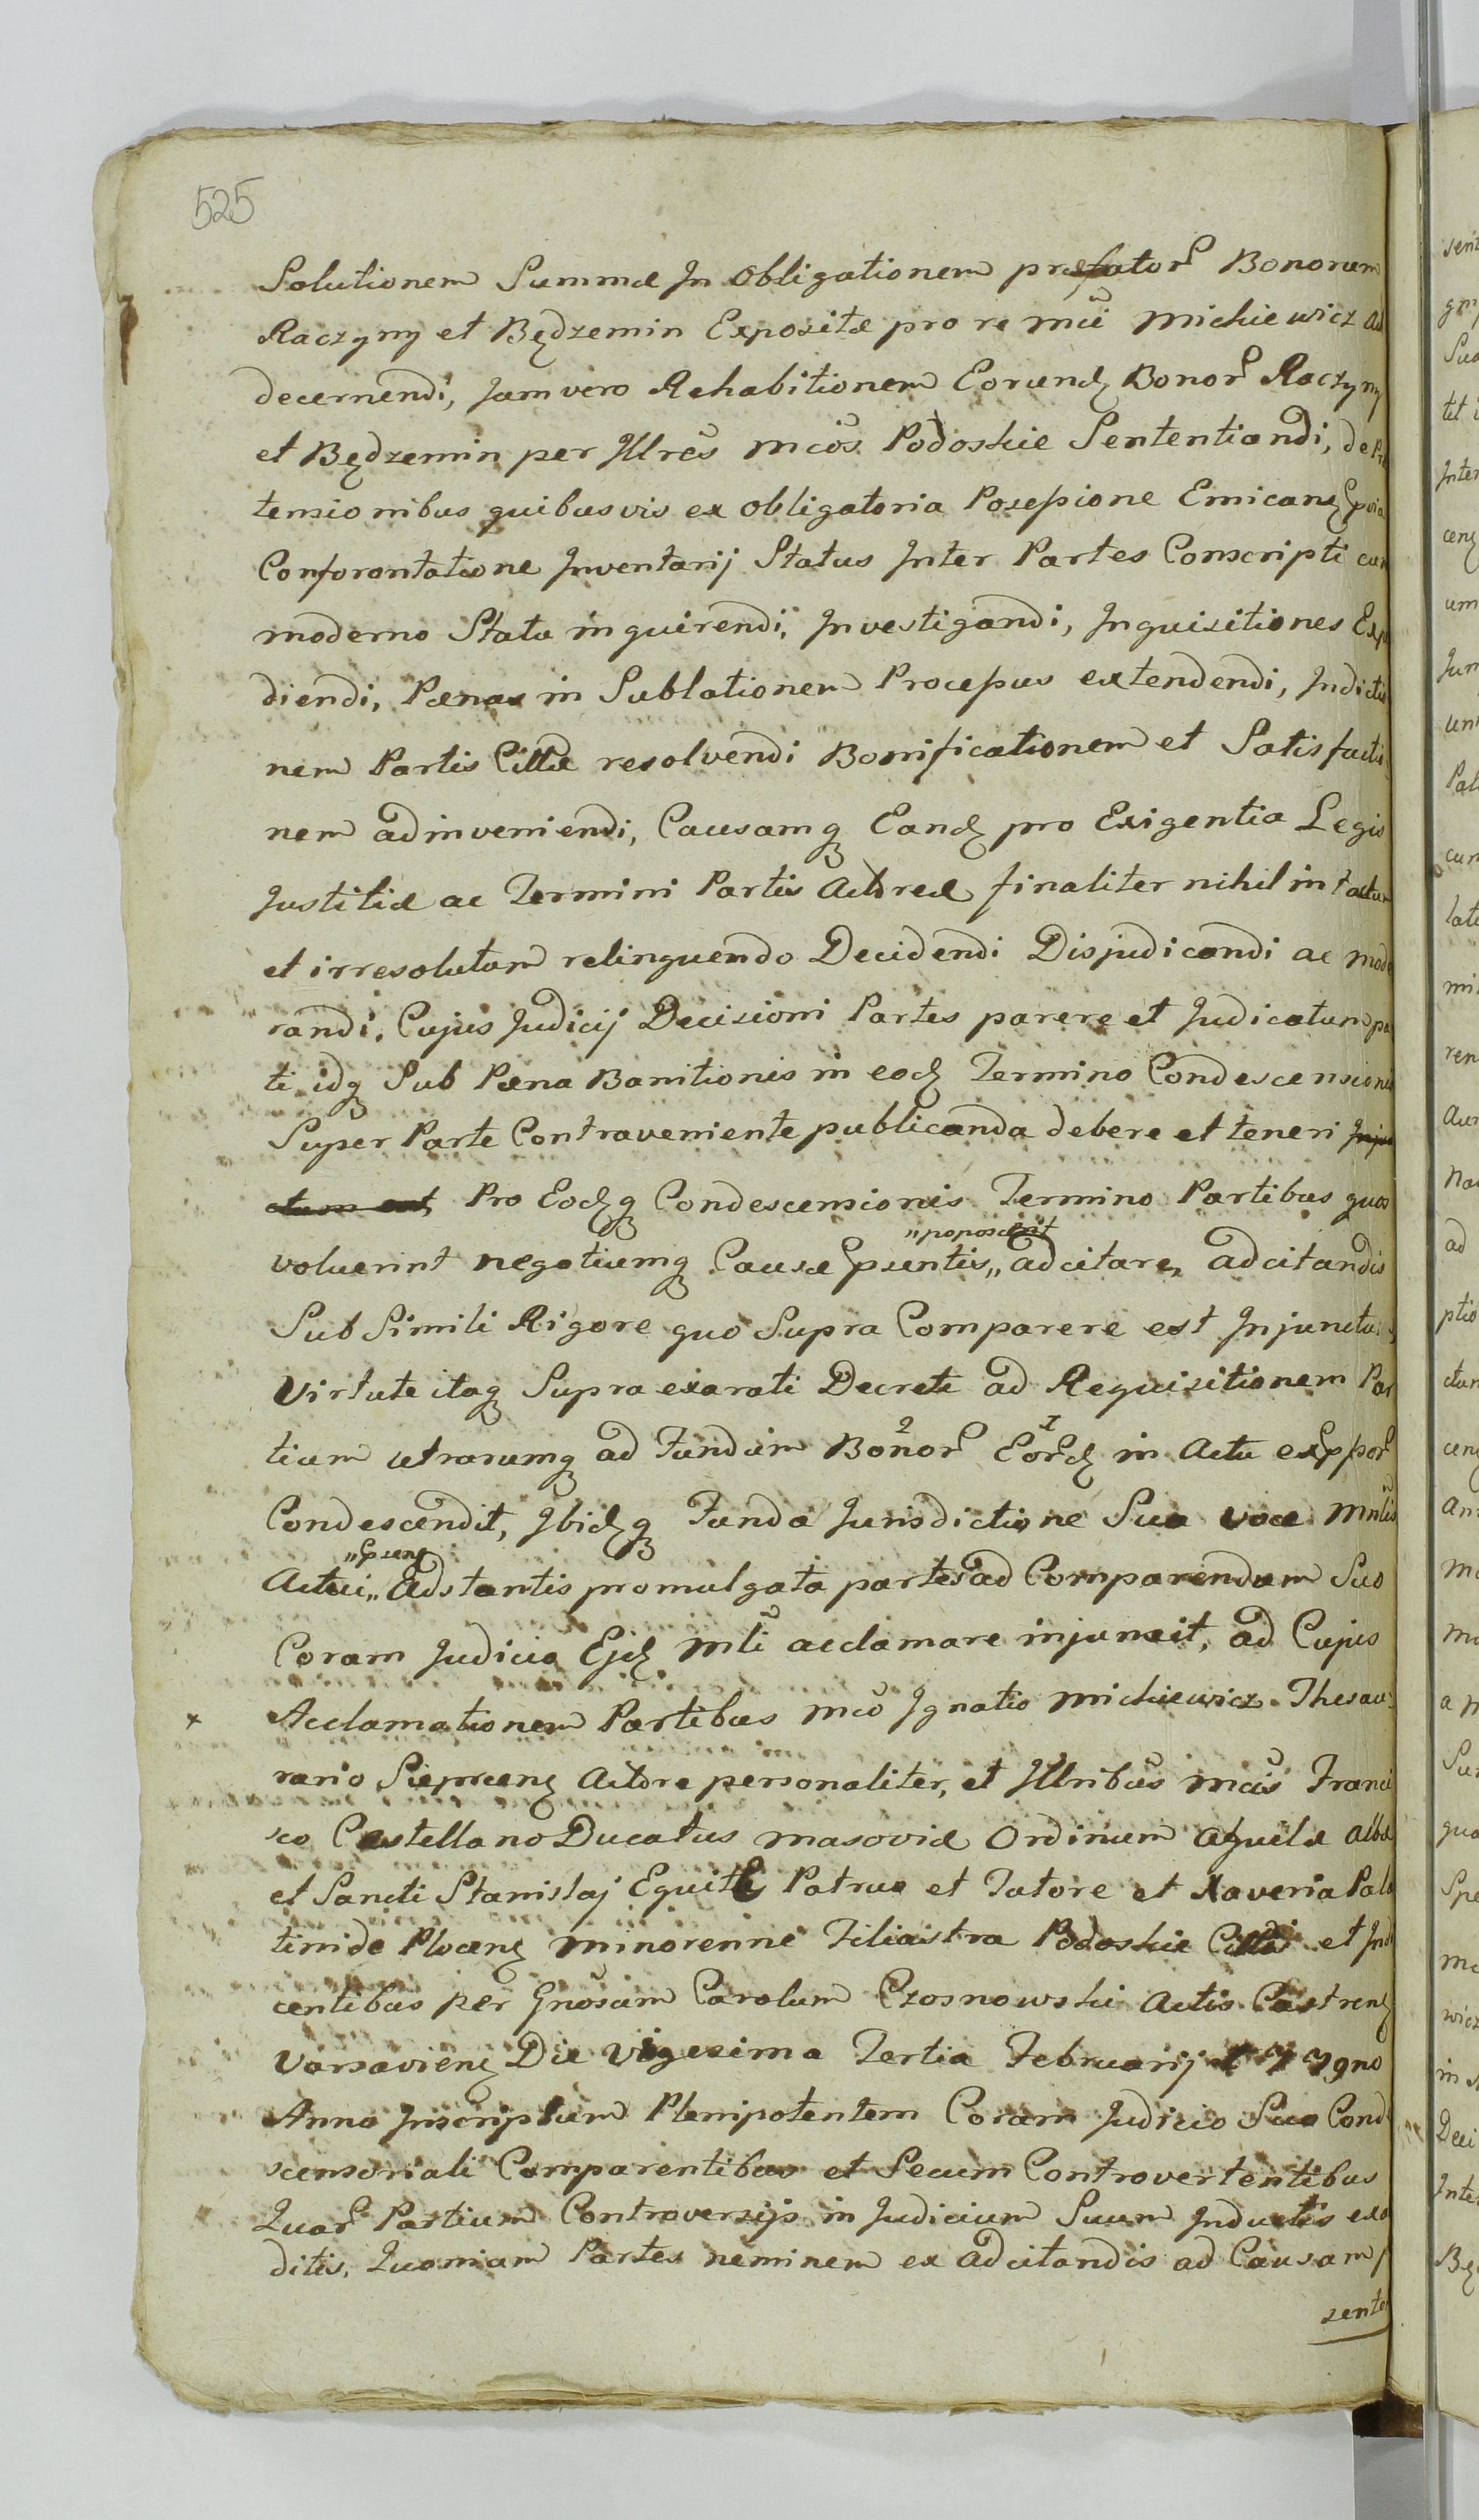 525
Solutionem Summæ In Obligationem præfator Bonorum
Raczyny et Będzemin Expositæ pro re mci Michiewicz ad
decernendi, Jam vero Rehabitionem Eorund Bonor Raczyny
et Będzemin per Illres mcos Podoskie Sententiandi, de Præ
tensionibus quibusvis ex obligatoria Possessione Emican
Conforontatione Inventarij Status Inter Partes Conscripti cum
moderno Statu inquirendi, Investigandi, Inquisitiones Expe
diendi, Pænas in Sublationem Processus extendendi, Indictio
nem Partis Cittæ resolvendi Bonificationem et Satisfactio
nem adinveniendi, Causamq Eand pro Exigentia Legis
Justitiæ ac Termini Partis Actoreæ finaliter nihil intactum
et irresolutum relinquendo Decidendi Disjudicandi ac mode
randi, Cujus Judicij Decisioni Partes parere et Judicatum pa
ti idq Sub Pæna Banitionis in eod Termino Condescensionis
Super Parte Contraveniente publicanda debere et teneri Injun
ctum est, Pro Eodq Condescensionis Termino Partibus quos
voluerint negotiumq Causæ psentis „ adcitare, adcitandis
„poposcerit
Sub Simili Rigore quo Supra Comparere est Injunctum
Virtute itaq Supra exarati Decreti ad Requisitionem Par
tium utrarumq ad Fundum Bonor 2 Eord 1 in Actu expssor
Condescendit, Ibidq Funda Jurisdictione Sua voce Mnlis
Actui „ Adstantis promulgata partes ad Comparendum Suo
„psen
Coram Judicio Ejd Mli acclamare injunxit, ad Cujus
x Acclamationem Partibus mco Ignatio Michiewicz Thesau
rario Sieprcen Actore personaliter, et Illribus mcis Franci
sco Castellano Ducatus Masoviæ Ordinum Aquilæ Albæ
et Sancti Stanislaj Equite Patruo et Tutore et Xaveria Pala
tinide Plocen minorenne Filiastra Podoskie Cittis et Indu
centibus per Gnosum Carolum Czosnowski Actis Castren
Varsavien Die Vigesima Tertia Februarij
Anno Inscriptum Plenipotentem Coram Judicio Suo Conde
scensoriali Comparentibus et Secum Controvertentibus
Quar Partium Controversijs in Judicium Suum Inductis exau
ditis, Quoniam Partes neminem ex adcitandis ad Causam p
senten